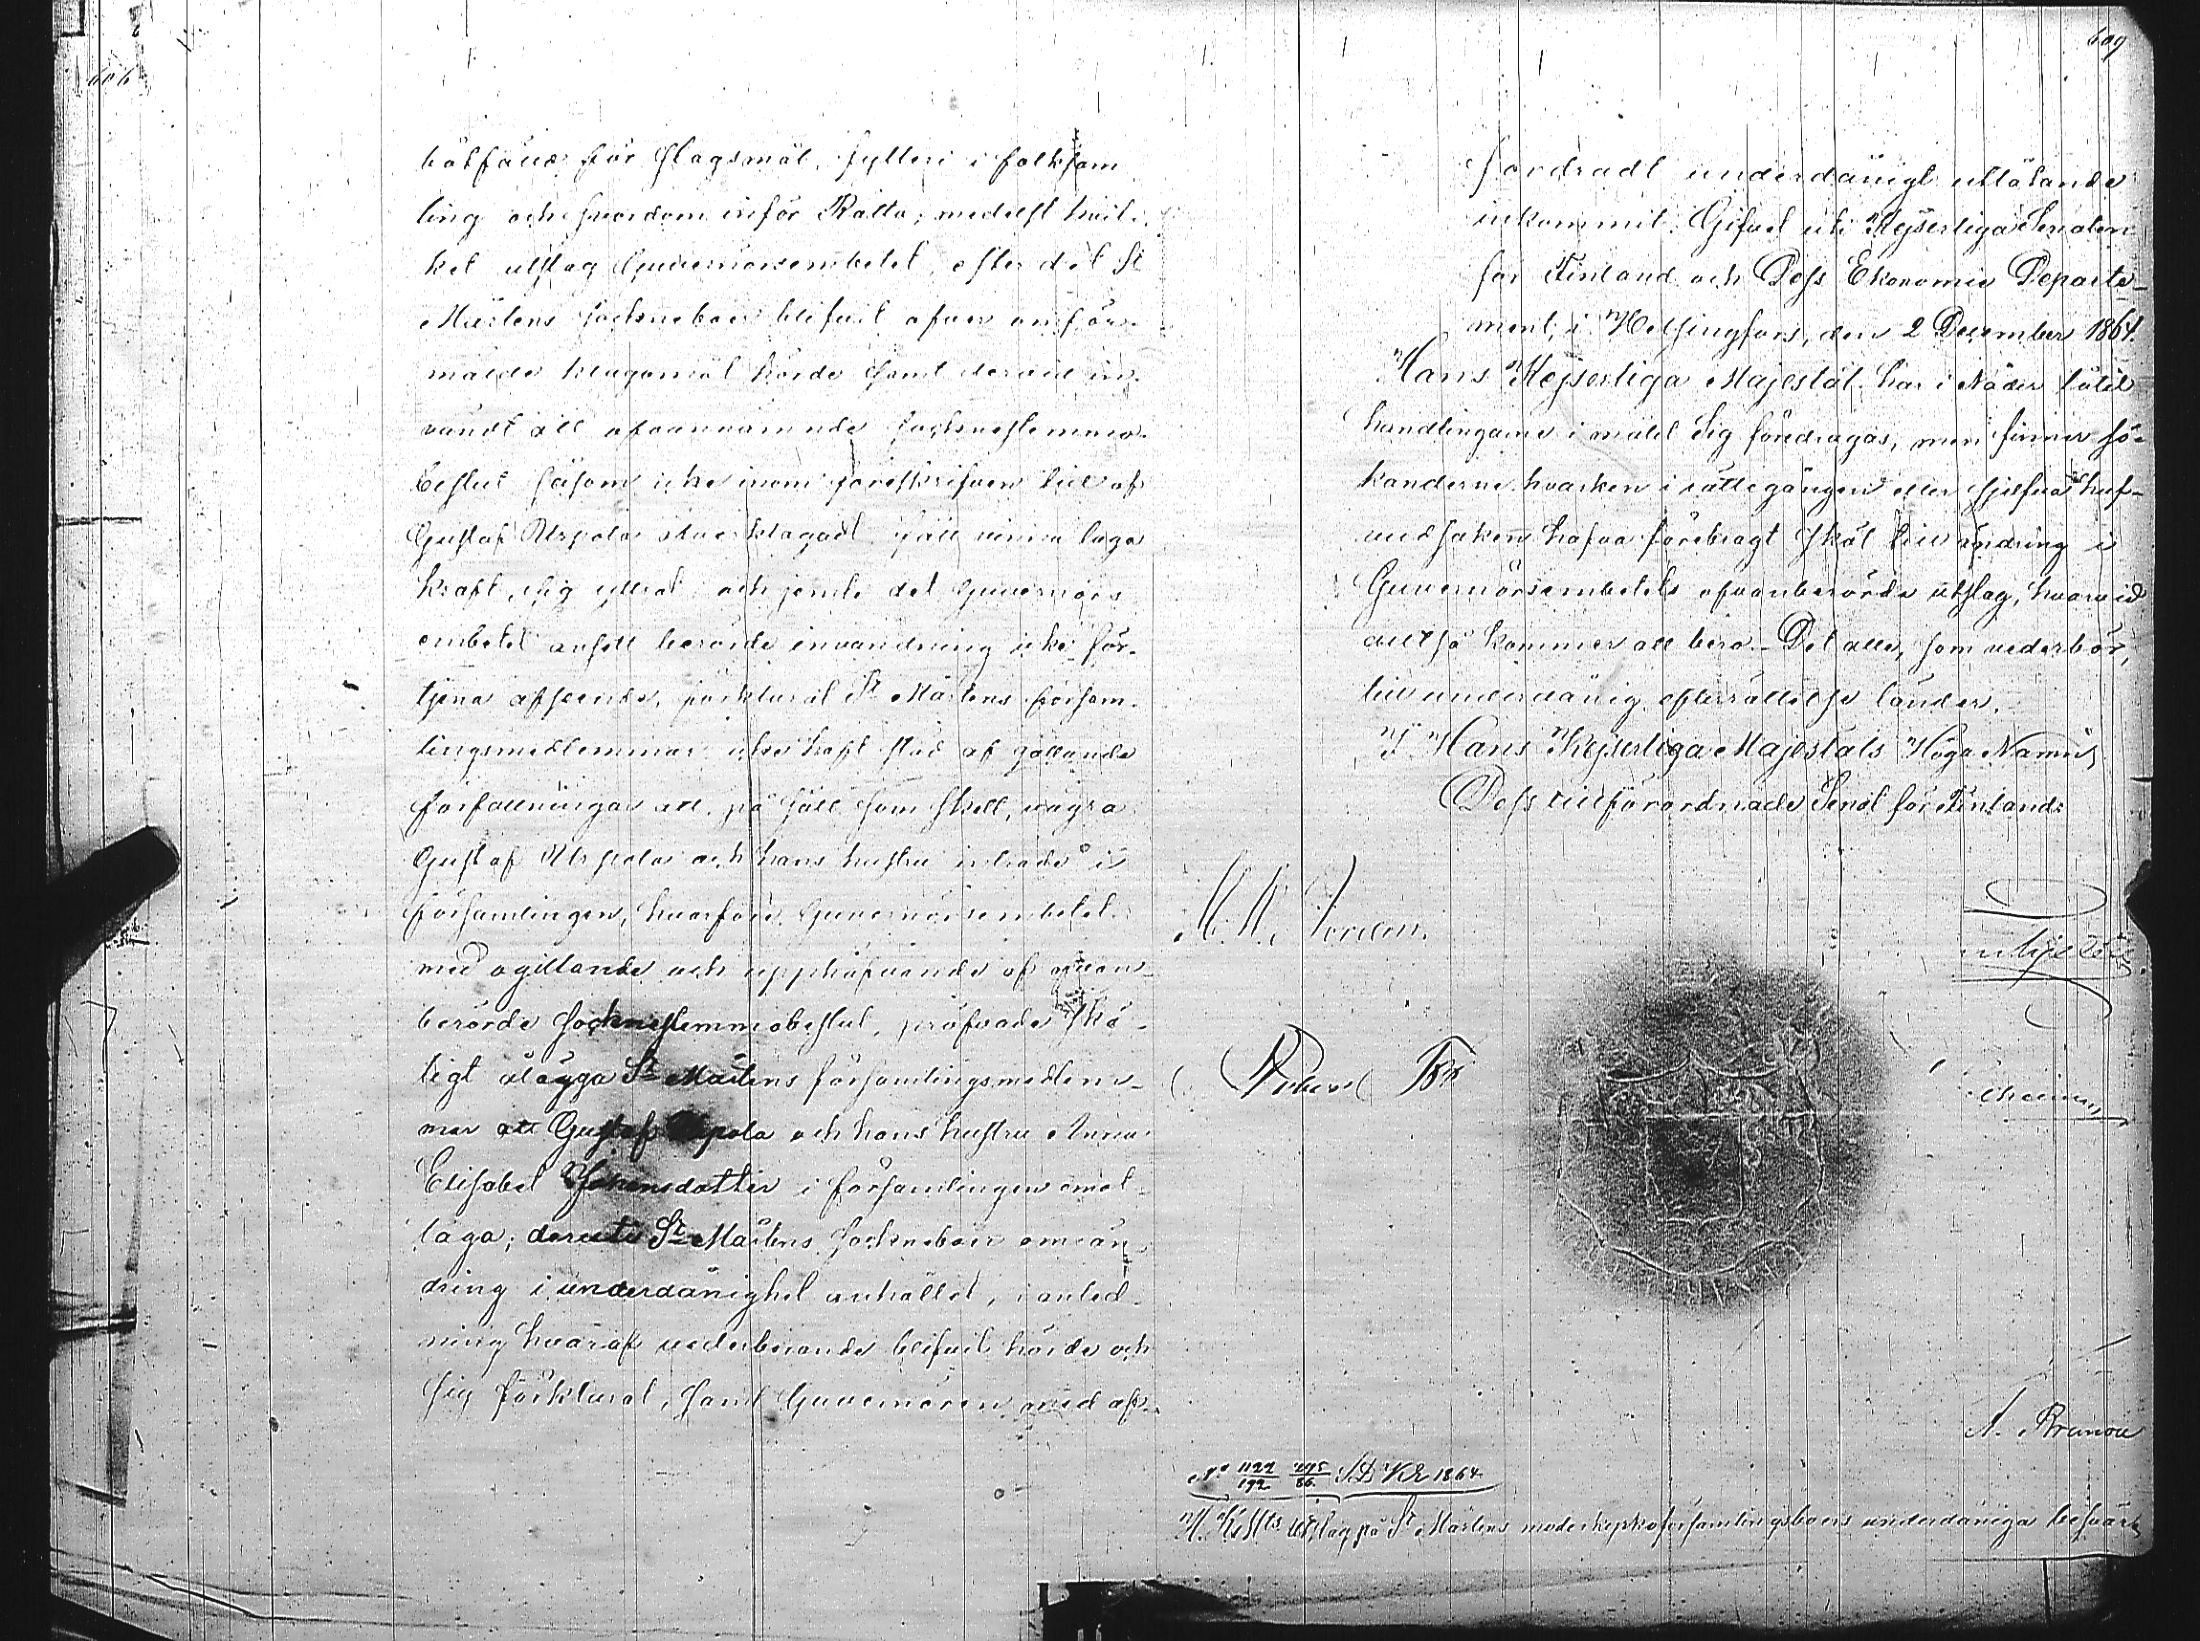 606
bötfäld för slagsmål, fylleri i folksam
ling och svordom inför Rätta; medelst hvil-
ket utslag Guvernörsembetet, efter det St
Mårtens socknebor blifvit öfver anför-
mälde klagomål hörde samt dervid in-
vändt att ofvannämnde sockneстemmo-
beslut såsom icke inom föreskrifven tid af
Gustaf Urpola öfverklagadt, vunnit laga
kraft, sig yttrat och jemte det Guvernörs
embetet ansett berörde invändning icke för-
tjena afseende, förklarat St Mårtens försam-
lingsmedlemmar icke haft stöd af gällande
författningar att, på sätt som skett, vägra
Gustaf Urpola och hans hustru inträde i
församlingen, hvarföre Guvernörsembetet
med ogillande och upphäfvande af ofvan-
berörde sockneстemmobeslut, pröfvade skä-
ligt ålägga St Mårtens församlingsmedlem-
mar att Gustaf Urpola och hans hustru Anna
Elisabet Johansdotter i församlingen emot-
taga; deruti St Mårtens socknebor om än-
dring i underdånighet anhållit, i anled-
ning hvaraf vederbörande blifvit hörde och
sig förklarat, samt Guvernören med af-
609
fordradt underdånigt utlåtande
inkommit. Gifvet uti Kejserliga Senaten
för Finland och Dess Ekonomie Departe-
ment, i Helsingfors, den 2 December 1864.
Hans Kejserliga Majestät har i Nåder låtit
handlingarne i målet Sig föredragas, men finner sö-
kanderne hvarken i rättegången eller sjelfva huf-
vudsaken hafva förebragt skäl till ändring i
Guvernörsembetets ofvanberörde utslag, hvarvid
alltså kommer att bero. Det alle, som vederbör,
till underdånig efterrättelse länder.
I Hans Kejserliga Majestäts Höga Namn,
Dess tillförordnade Senat för Finland:
N° 1122/192 495/86. S.D. K.E. 1864
H. K. Mts Utslag på St Mårtens moderkyrkoförsamlingsboers underdåniga besvär